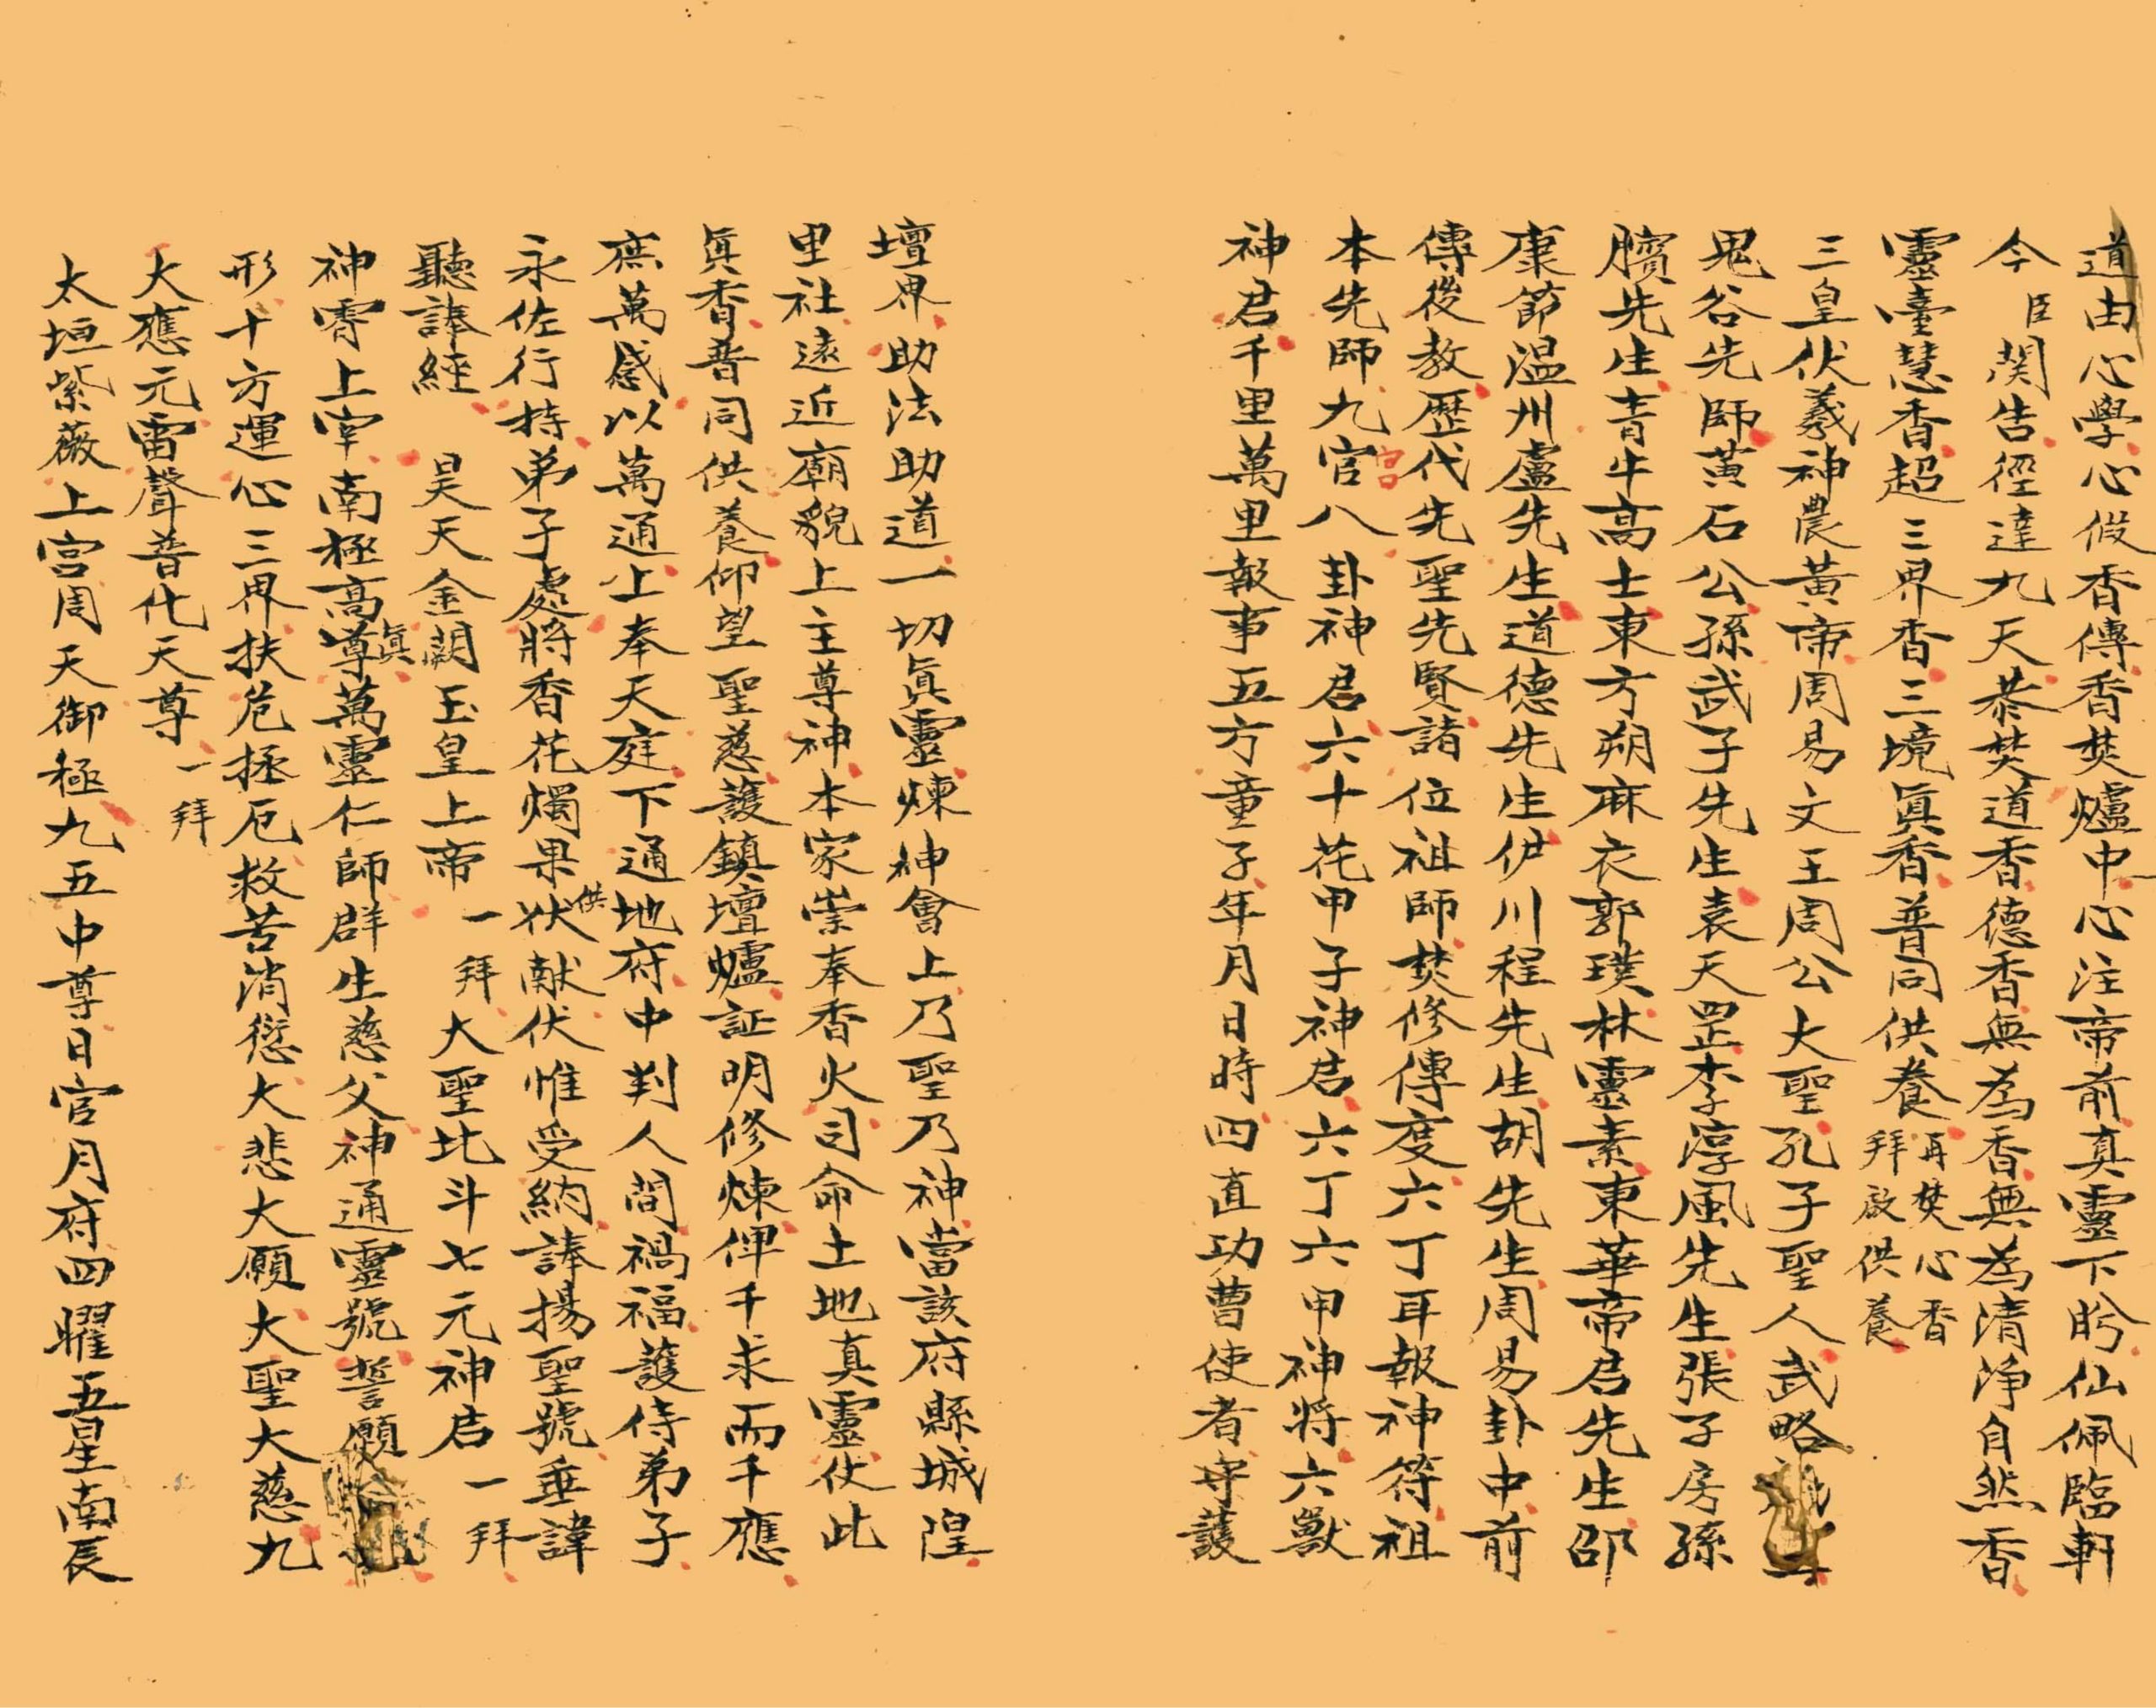 道由心學心假香傳香焚爐中心注帝前真靈下盻仙佩臨軒
今臣関告徑達九天恭焚道香德香無為香無為清淨自然香
靈臺慧香超三界香三境真香普同供養再焚心香拜啟供養
三皇伏羲神農黃帝周易文王周公大聖孔子聖人武略
鬼谷先師黃石公孫武子先生袁天罡李淳風先生張子房孫
臏先生青牛高士東方朔麻衣郭璞林靈素東華帝君先生邵
康節溫州盧先生道德先生伊川程先生胡先生周易卦中前
傳後教歷代先聖先賢諸位祖師焚修傳度六丁耳報神符祖
本先師九官宮八卦神君六十花甲子神君六丁六甲神將六獸
神君千里萬里報事五方童子年月日時四直功曹使者守護
壇界助法助道一切眞靈煉神會上乃聖乃神當該府縣城隍
里社遠近廟貌上主尊神本家崇奉香火司命土地真靈仗此
眞香普同供養仰望聖慈護鎮壇爐証明修煉俾千求而千應
庶萬感以萬通上奉天庭下通地府中判人間禍福護侍弟子
永佐行持弟子處將香花燭果供狀献伏惟受納諱揚聖號垂諱
聽諱經 昊天金闕玉皇上帝 一拜 大聖北斗七元神君 一拜
神霄上宰南極高尊眞萬靈仁師群生慈父神通靈號誓願
形十方運心三界扶危拯厄救苦消愆大悲大願大聖大慈九
大應元雷聲普化天尊 一拜
太垣紫薇上宮周天御極九五中尊日官月府四曜五星南辰